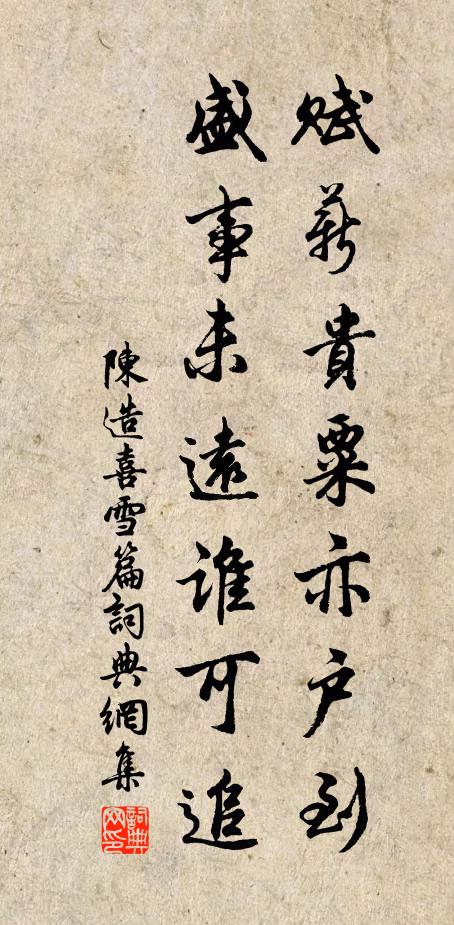 賦薪貴粟亦户到
盛事未遠誰可追
陳造喜雪篇詞典網集
詞典网印